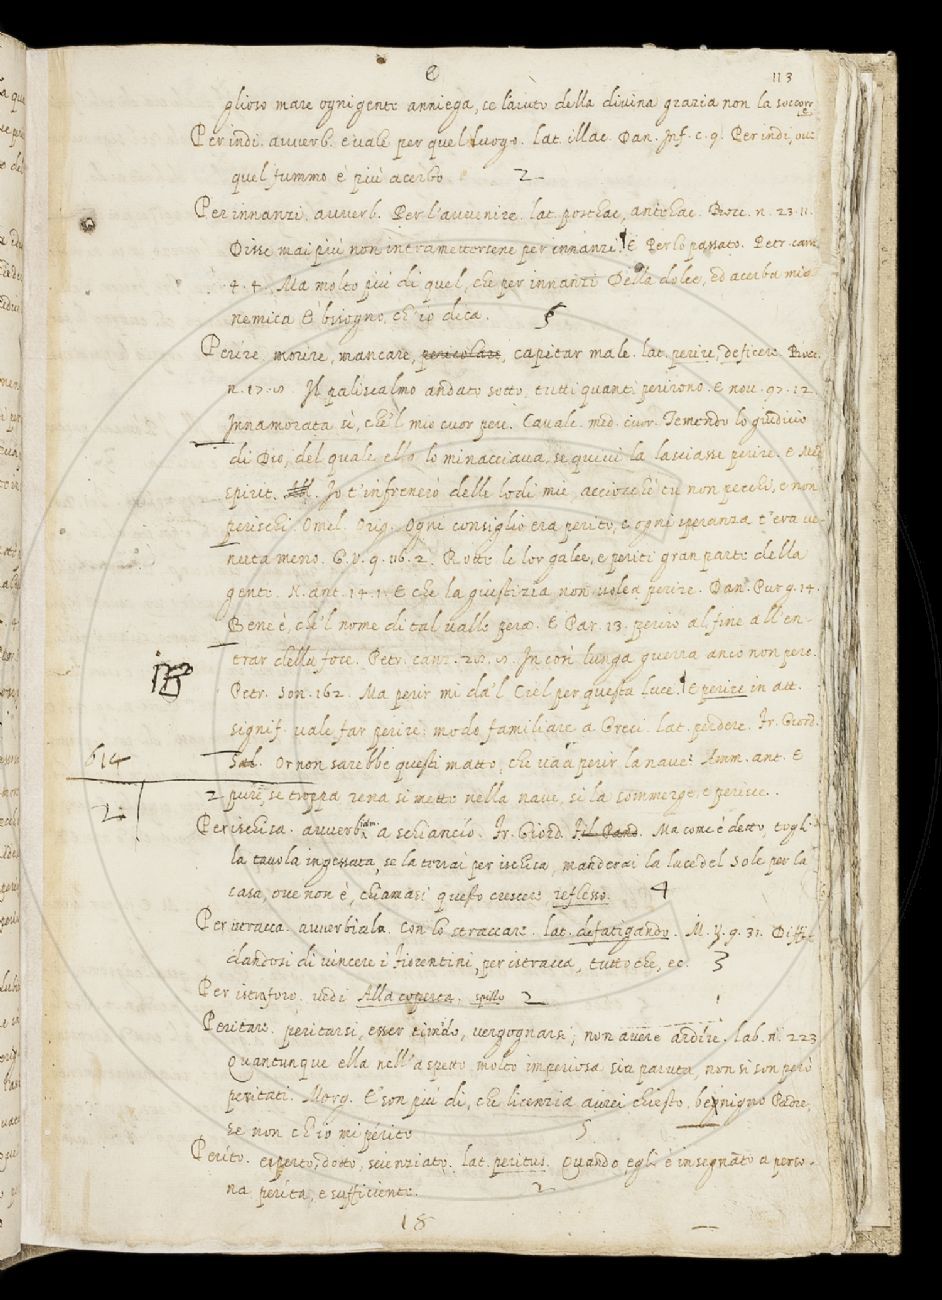 e 113
glioso mare ogni gente anniega, se l'aiuto della divina grazia non la soccorre
Per indi. avverb. e vale per quel luogo. lat. illac. Dan. Inf. c. 9. Per indi, ove
quel fummo è più acerbo 2
Per innanzi. avverb. Per l'avvenire. lat. posthac, antehac. Bocc. n. 23. 11.
Disse mai più non intramettersene per innanzi. E Per lo passato. Petr. canz.
4. 4. Ma molto più di quel, che per innanzi Della dolce, ed acerba mia
nemica È bisogno, ch'io dica. 5
Perire, morire, mancare, pericolare, capitar male. lat. perire, deficere. Bocc.
n. 17. 8. Il paliscalmo andato sotto, tutti quanti perirono. E nov. 97. 12.
Innamorata sì, che'l mio cuor pere. Cavalc. med. cuor. Temendo lo giudicio
di Dio, del quale ella lo minacciava, se quivi la lasciasse perire. E Med.
spirit. Io t'infrenerò delle lodi mie, acciocché tu non pecchi, e non
perischi. Omel. Orig. Ogni consiglio era perito, e ogni speranza t'era ve-
nuta meno. G. V. 9. 116. 2. Rotte le lor galee, e periti gran parte della
gente. N. ant. 14. 1. E che la giustizia non volea perire. Dan. Purg. 14.
Bene è, che'l nome di tal valle pera. E Par. 13. perire al fine all'en-
trar della foce. Petr. canz. 28. 8. In così lunga guerra anco non pere.
Petr. Son. 162. Ma perir mi dà'l Ciel per questa luce. E perire in att.
signif. vale far perire: modo familiare a Greci. lat. perdere. Fr. Giord.
614 Sal. Or non sarebbe questi matto, che và a perir la nave? Amm. ant. E
2 2 pure, se troppa rena si mette nella nave, si la sommerge, e perisce.
Per ischisa. avverb. a schiancío. Fr. Giord. Ma come è detto, togli
la tavola ingessata, se la trovai per ischisa, manderai la luce del Sole per la
casa, ove non è, chiamasi questo crescere reflesso. 4
Per istracca. avverbiale. Con lo straccare. lat. defatigando. M. V. 9. 31. Diffi-
dandosi di vincere i Fiorentini, per istracca, tutto che, ec. 3
Per istraforo. vedi Alla coperta. spillo 2
Peritare. péritarsi, esser timido, vergognarsi; non avere ardire. lab. n. 223
Quantunque ella nell'aspetto molto imperiosa sia paruta, non si son però
peritati. Morg. E son più dì, che licenzia avrei chiesto, benigno Padre,
se non ch'io mi périto 5
Períto. esperto, dotto, scienziato. lat. peritus. Quando egli è insegnato a perso-
na perita, e sufficiente. 2
18